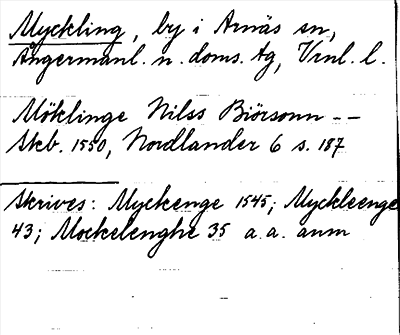 Myckling, by i Arnäs sn,
Ångermanl. n. doms. tg, Vrnl. l.
Möklinge Nilss Biörsonn --
Skb. 1550, Nordlander 6 s. 187
Skrives: Myckenge 1545; Myckleenge
43; Mockelenghe 35 a.a. anm